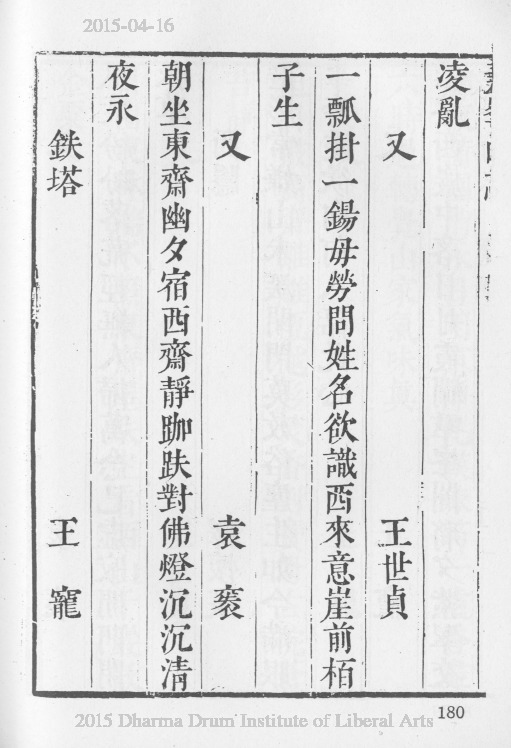 2015-04-16
凌亂
又 王世貞
一瓢掛一鍚毋勞問姓名欲識西來意崖前栢
子生
又 袁褧
朝坐東齋幽夕宿西齋靜跏趺對佛燈沉沉清
夜永
鉄塔 王寵
180
2015 Dharma Drum Institute of Liberal Arts